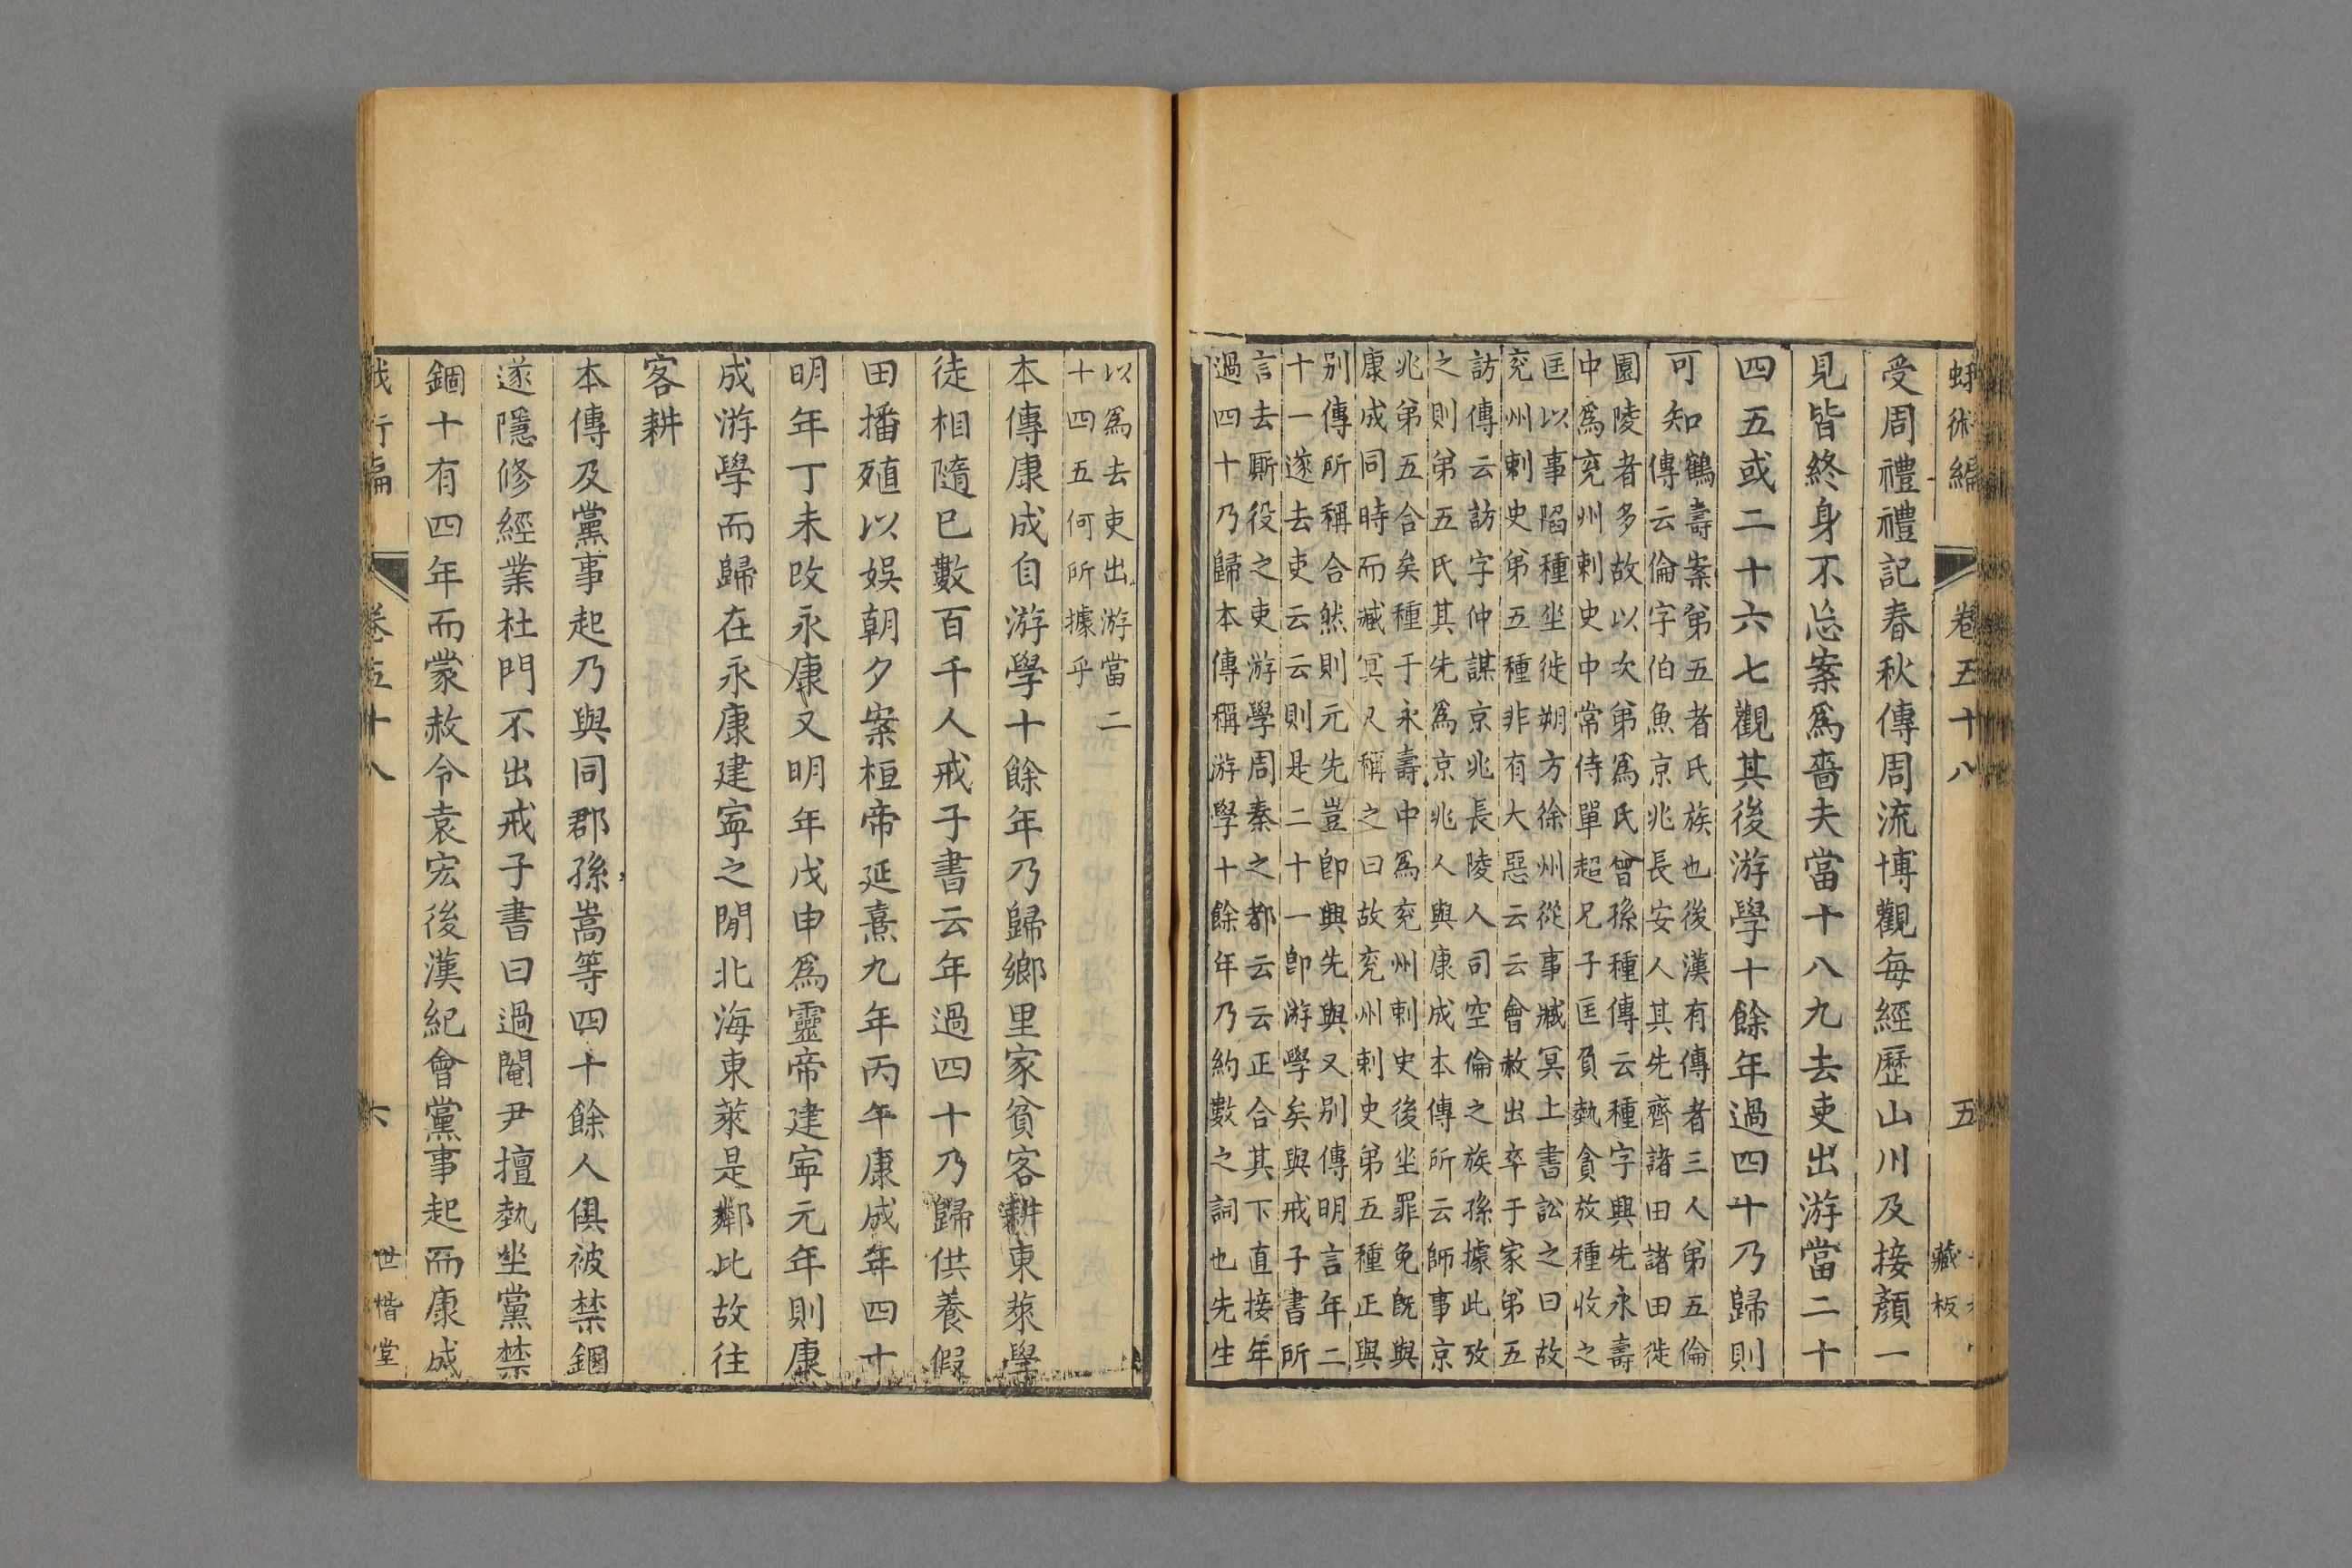 蛾術編 卷五十八 五 藏板
受周禮禮記春秋傳周流博觀每經歷山川及接顏一
見皆終身不忘案爲嗇夫當十八九去吏出游當二十
四五或二十六七觀其後游學十餘年過四十乃歸則
可知鶴壽案第五者氏族也後漢有傳者三人第五倫
傳云倫字伯魚京兆長安人其先齊諸田諸田徙
園陵者多故以次第爲氏曾孫種傳云種字興先永壽
中爲兖州刺史中常侍單超兄子匡負埶貪放種收之
匡以事陷種坐徙朔方徐州從事臧冥上書訟之曰故
兖州刺史第五種非有大惡云云會赦出卒于家第五
訪傳云訪字仲謀京兆長陵人司空倫之族孫據此攷
之則第五氏其先爲京兆人與康成本傳所云師事京
兆第五合矣種于永壽中爲兖州刺史後坐罪免旣與
康成同時而臧冥又稱之曰故兖州刺史第五種正與
别傳所稱合然則元先豈卽興先與又别傳明言年二
十一遂去吏云云則是二十一卽游學矣與戒子書所
言去厮役之吏游學周秦之都云云正合其下直接年
過四十乃歸本傳稱游學十餘年乃約數之詞也先生
以爲去吏出游當二
十四五何所據乎
本傳康成自游學十餘年乃歸鄉里家貧客耕東萊學
徒相隨巳數百千人戒子書云年過四十乃歸供養假
田播殖以娛朝夕案桓帝延熹九年丙午康成年四十
明年丁未改永康又明年戊申爲靈帝建寜元年則康
成游學而歸在永康建寜之閒北海東萊是鄰比故往
客耕
本傳及黨事起乃與同郡孫嵩等四十餘人俱被禁錮
遂隱修經業杜門不出戒子書曰過閹尹擅埶坐黨禁
錮十有四年而蒙赦令袁宏後漢紀會黨事起而康成
卷五十八 六 世楷堂